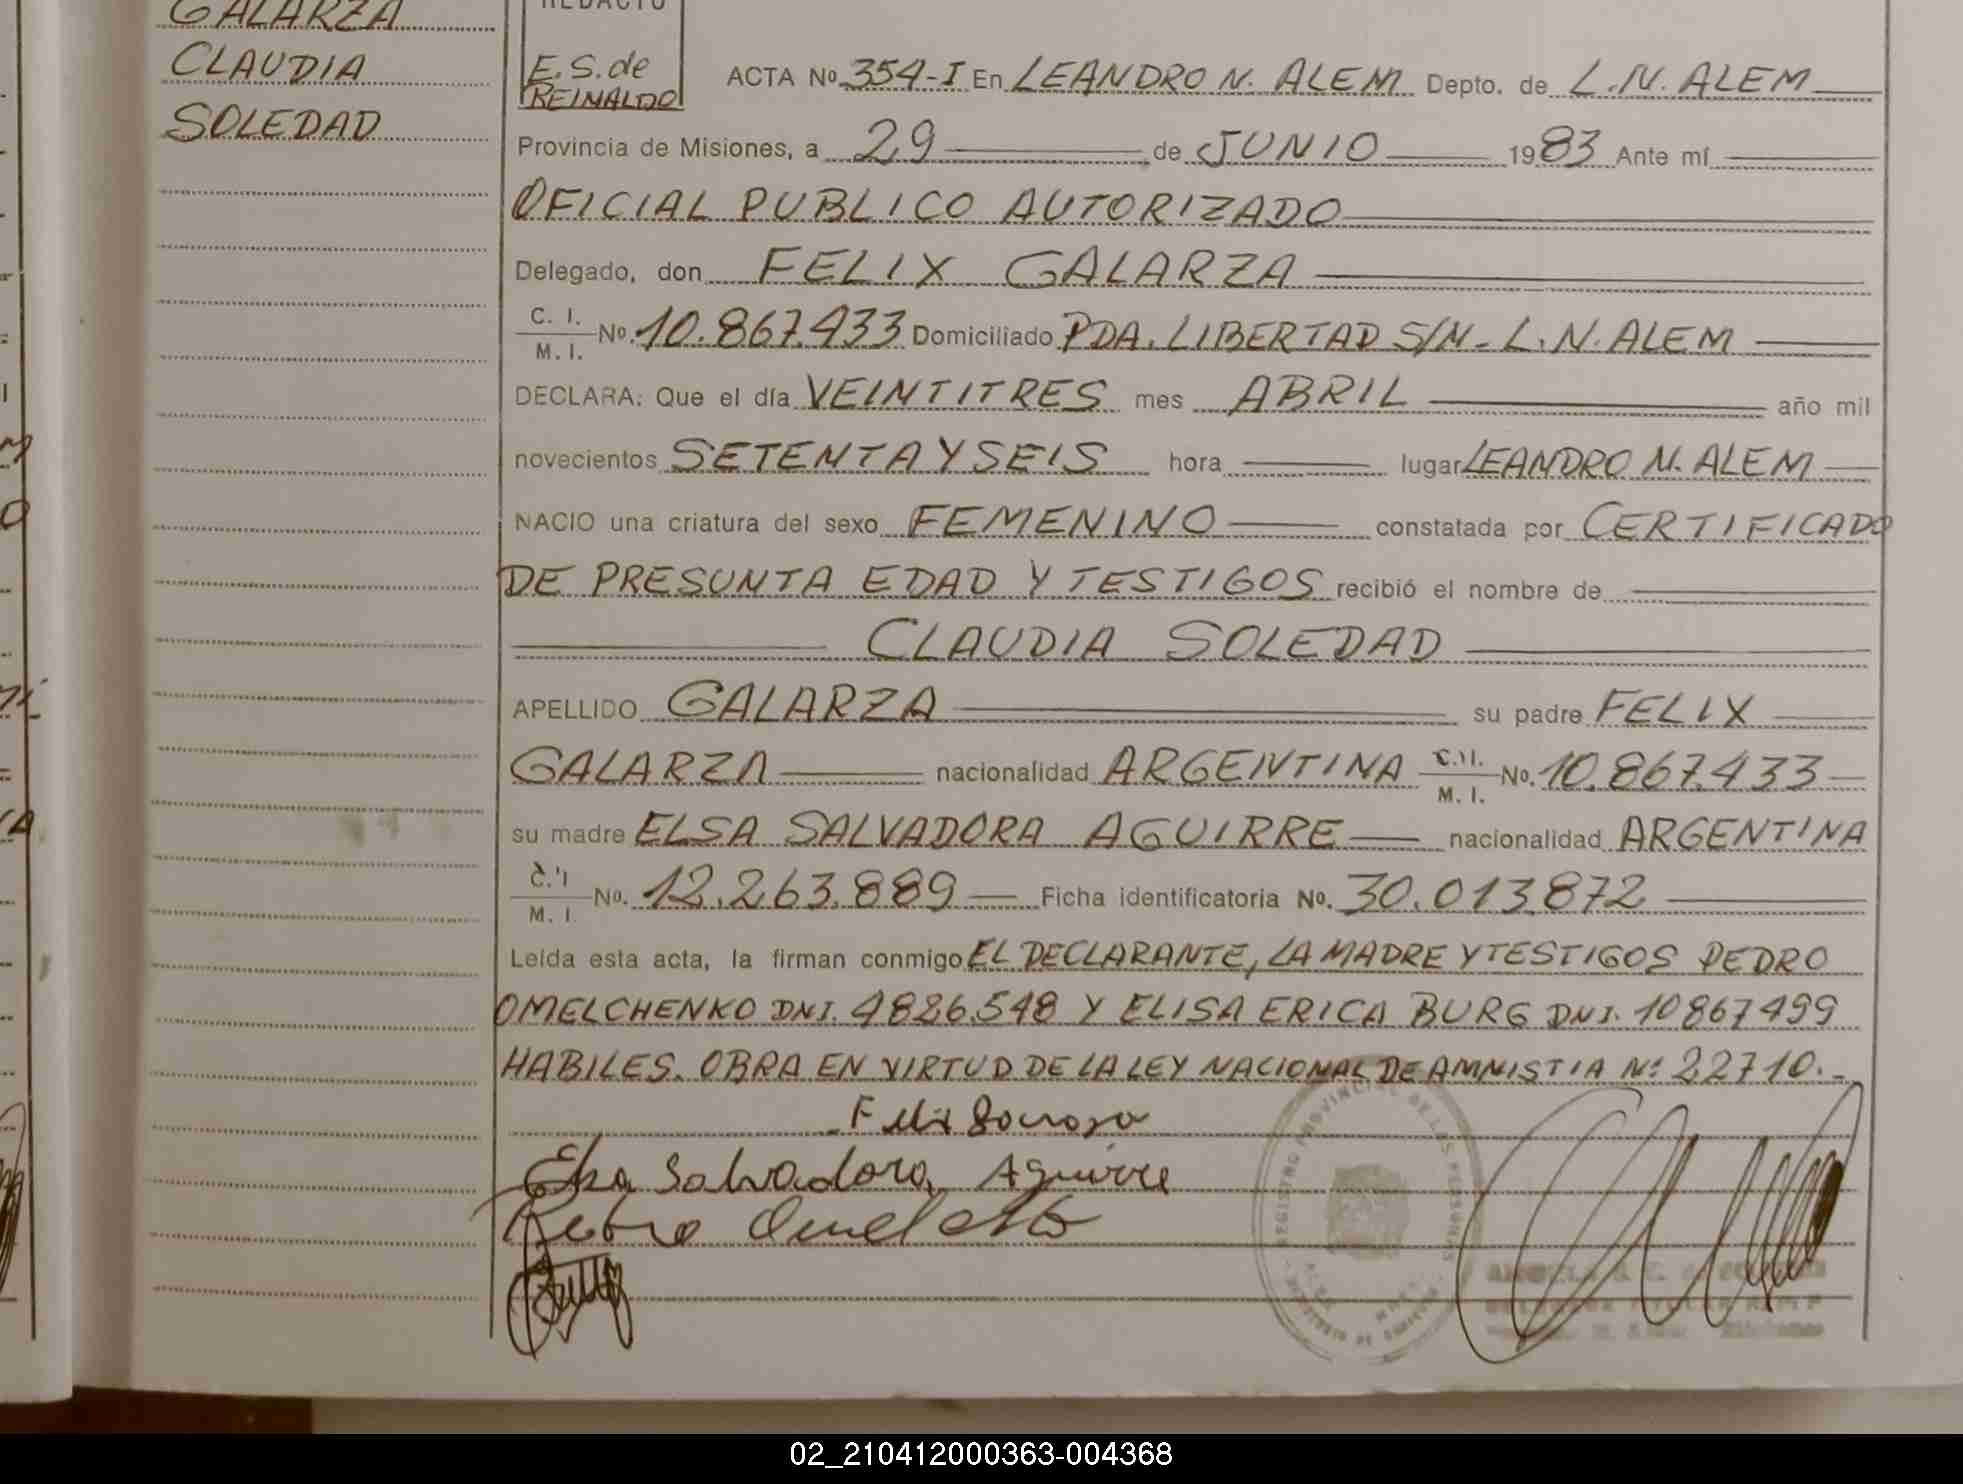 GALARZA
CLAUDIA
SOLEDAD
REDACTO
E.S.de
REINALDO
ACTA No. 354-I En LEANDRO N. ALEM Depto. de L.N. ALEM
Provincia de Misiones, a 29 de JUNIO 1983 Ante mí
OFICIAL PUBLICO AUTORIZADO
Delegado, don FELIX GALARZA
C. I. M. I. No. 10.867.433 Domiciliado PDA. LIBERTAD S/N- L.N. ALEM
DECLARA: Que el día VEINTITRES mes ABRIL año mil
novecientos SETENTA Y SEIS hora lugar LEANDRO N. ALEM
NACIO una criatura del sexo FEMENINO constatada por CERTIFICADO
DE PRESUNTA EDAD Y TESTIGOS recibió el nombre de
CLAUDIA SOLEDAD
APELLIDO GALARZA su padre FELIX
GALARZA nacionalidad ARGENTINA C.I. M. I. No. 10.867.433
su madre ELSA SALVADORA AGUIRRE nacionalidad ARGENTINA
C.I M. I. No. 12.263.889 Ficha identificatoria No. 30.013.872
Leída esta acta, la firman conmigo EL DECLARANTE, LA MADRE Y TESTIGOS PEDRO
OMELCHENKO DNI. 4826.548 Y ELISA ERICA BURG DNI. 10867499
HABILES. OBRA EN VIRTUD DE LA LEY NACIONAL DE AMNISTIA Nº 22710.-
Elsa Salvadora Aguirre
Pedro
REGISTRO PROVINCIAL DE LAS PERSONAS
02_210412000363-004368